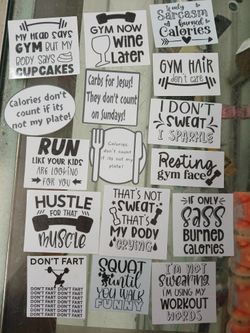 MY HEAD SAYS
GYM BUT MY
BODY SAYS
CUPCAKES
GYM NOW
WINE
LATER
if only
SARCASM
burned
CALORIES
Carbs for Jesus!
They don't count
on Sunday!
GYM HAIR
don't care
Calories don't
count if its
not my plate!
I DON'T
SWEAT
I SPARKLE
RUN
LIKE YOUR KIDS
ARE LOOKING
FOR YOU
Calories don't
count if its
not my plate!
Resting
gym face
HUSTLE
FOR THAT
muscle
THAT'S NOT
SWEAT
THAT'S
MY BODY
CRYING
IF ONLY
SASS
BURNED
CALORIES
DON'T FART
DON'T FART DON'T FART
DON'T FART DON'T FART
DON'T FART DON'T FART
DON'T FART DON'T FART
DON'T FART DON'T FART
SQUAT
until
YOU WALK
FUNNY
I'M NOT
Swearing
I'M USING MY
WORKOUT
WORDS